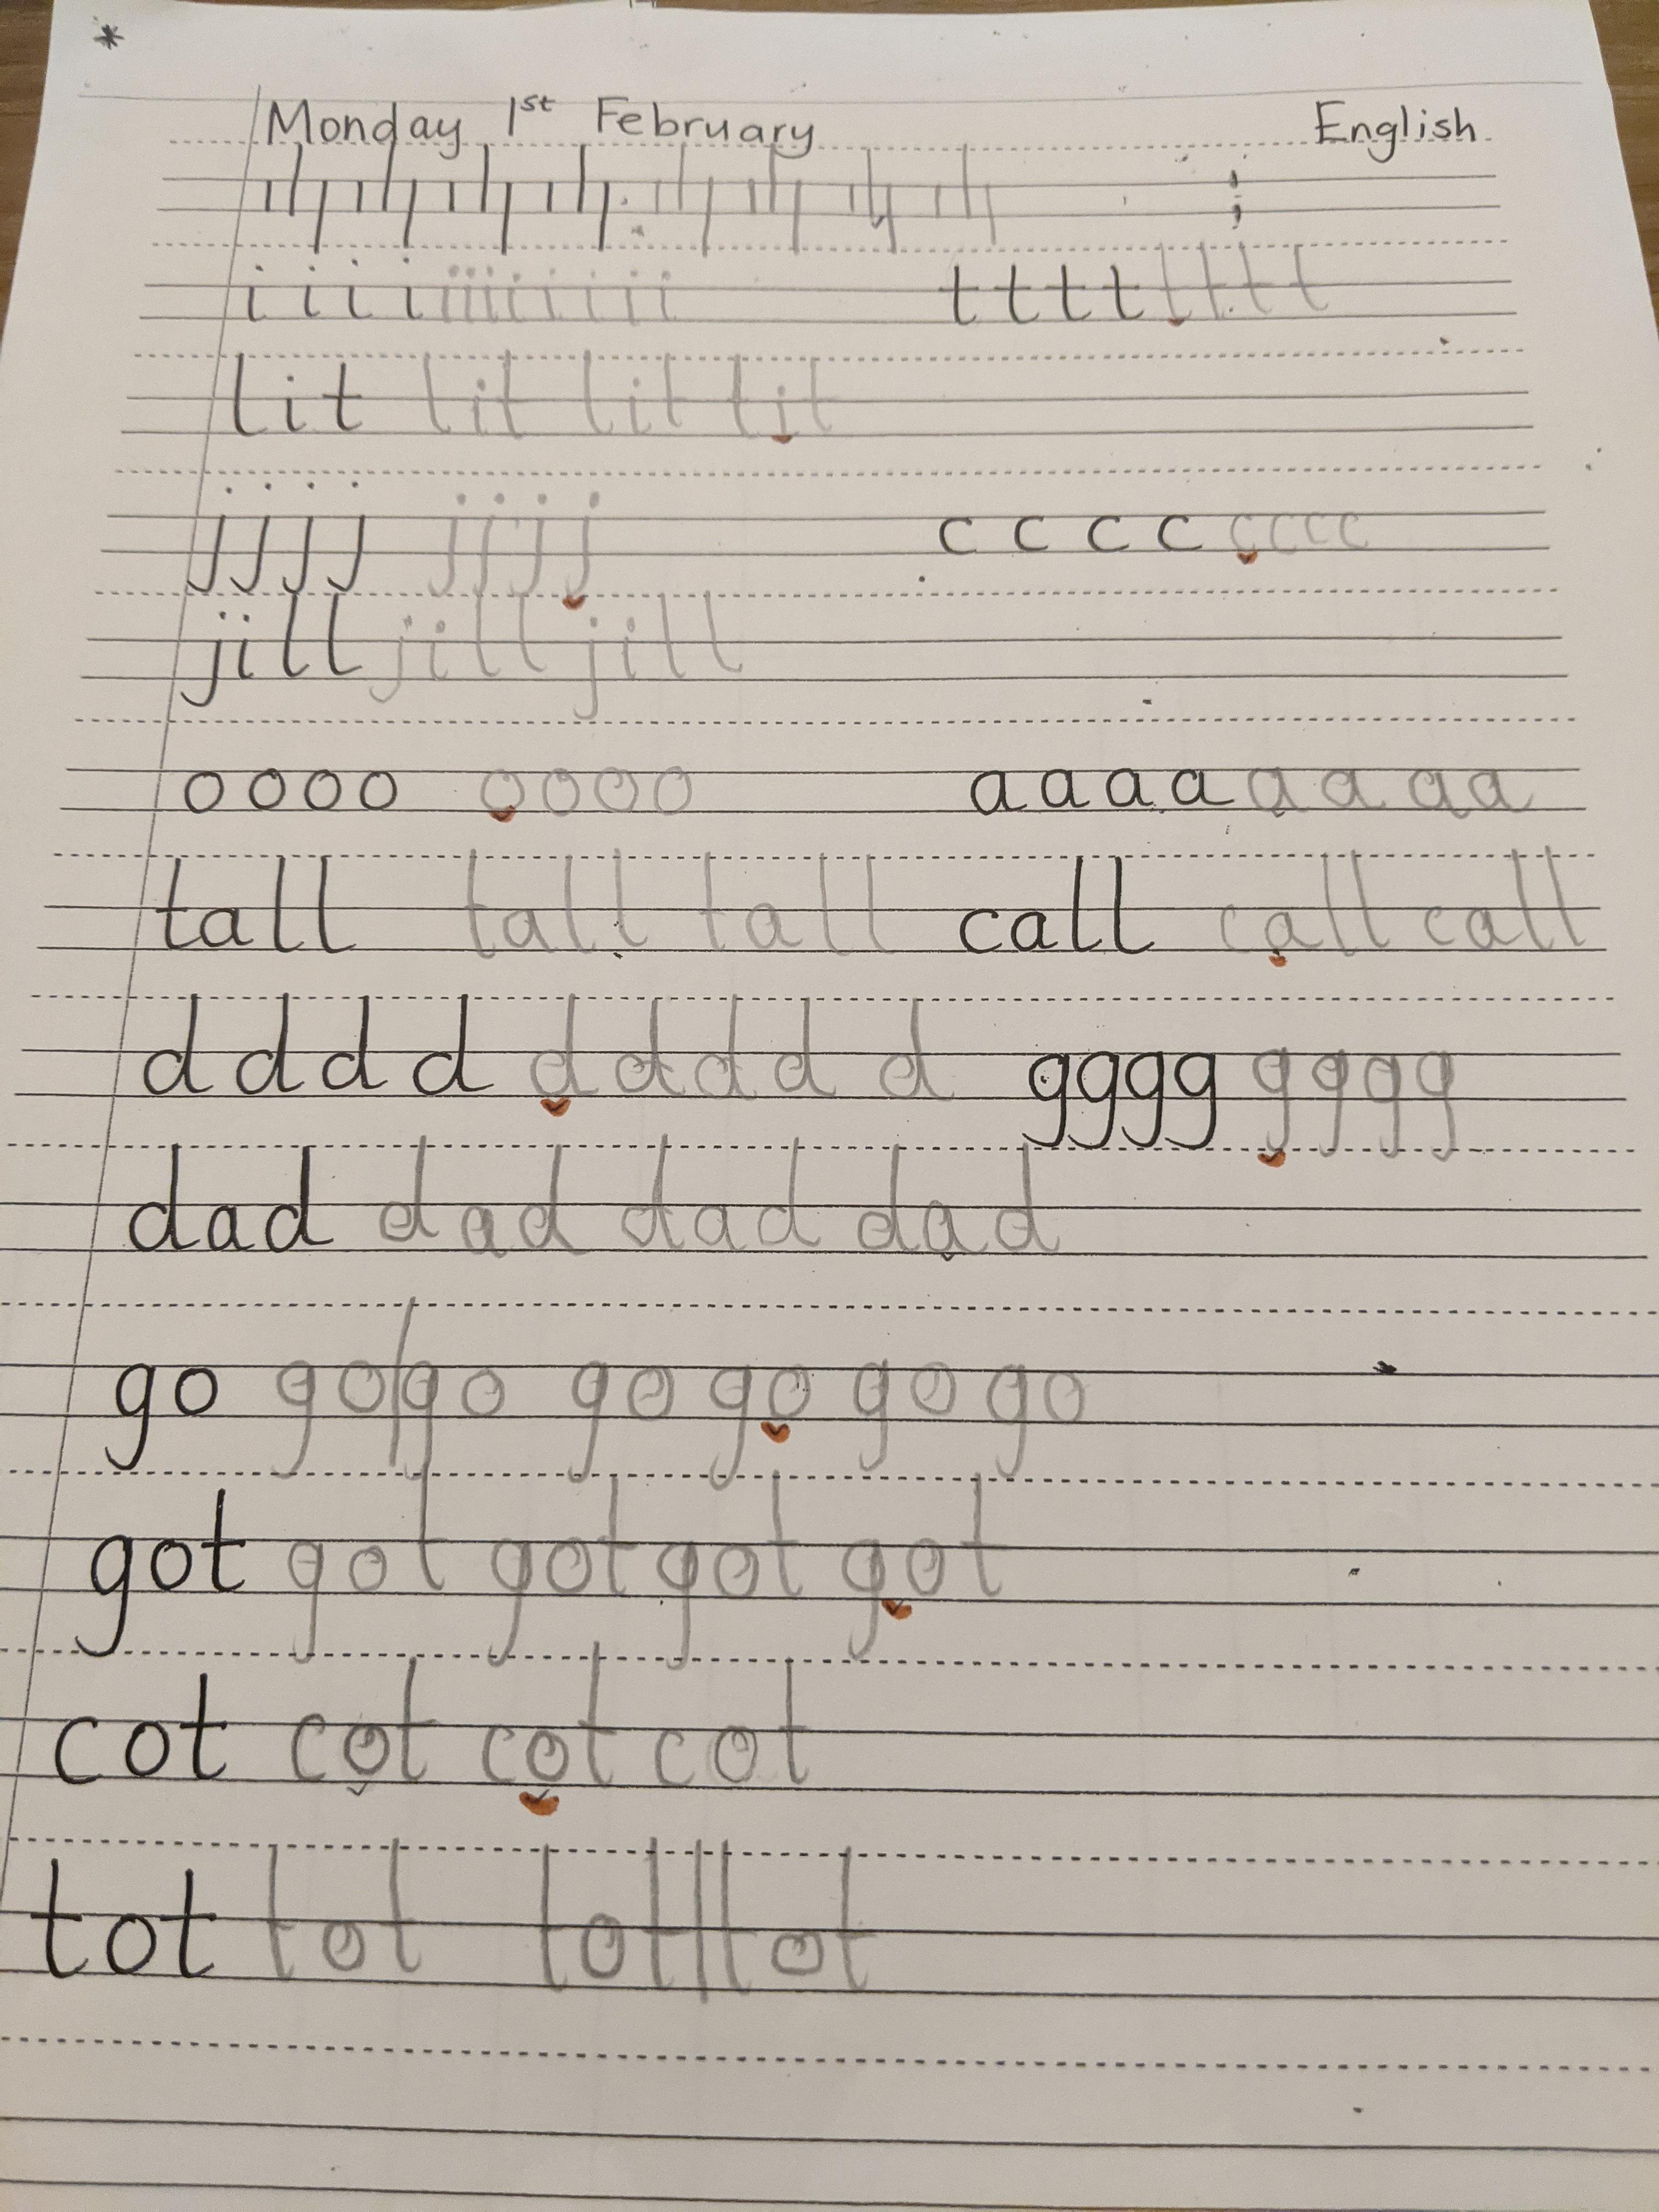 Monday 1st February English
i i i i i i i i i i i i t t t t t t t t
lit lit lit lit
j j j j j j j j c c c c c c c c
jill jill jill
o o o o o o o o a a a a a a a a
tall tall tall call call call
d d d d d d d d d g g g g g g g g
dad dad dad dad
go go go go go go go
got got got got got
cot cot cot cot
tot tot tot tot